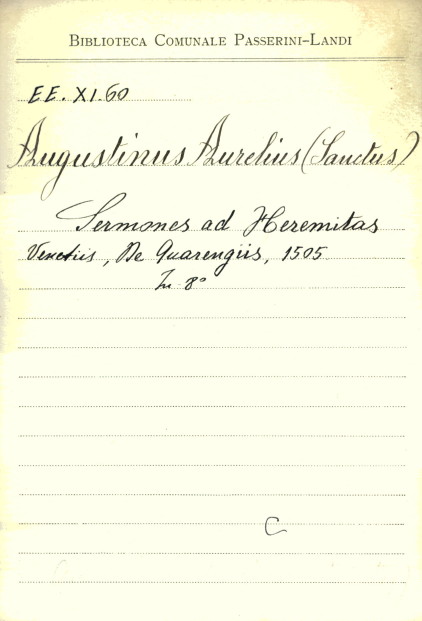 BIBLIOTECA COMUNALE PASSERINI-LANDI
EE. XI. 60
Augustinus Aurelius (Sanctus)
Sermones ad Heremitas
Venetiis, De Quarengiis, 1505
In 8°
C